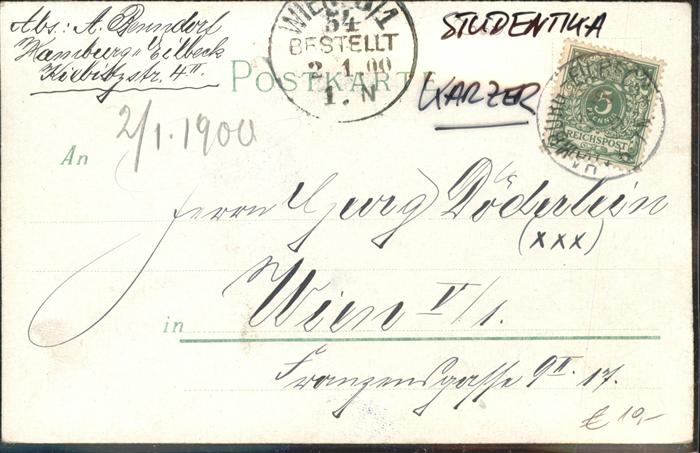 Abs: A. Benndorf
Hamburg-Eilbeck
Kiebitzstr. 4 II.
WIEN 5/1
54
BESTELLT
2.1.00
1.N
STUDENTIKA
KARZER
POSTKARTE
5
PFENNIG
REICHSPOST
2/1.1900
An
Herrn Georg Döderlein
(XXX)
in Wien V/1.
Franzensgasse 9 II. 17.
€ 10,-